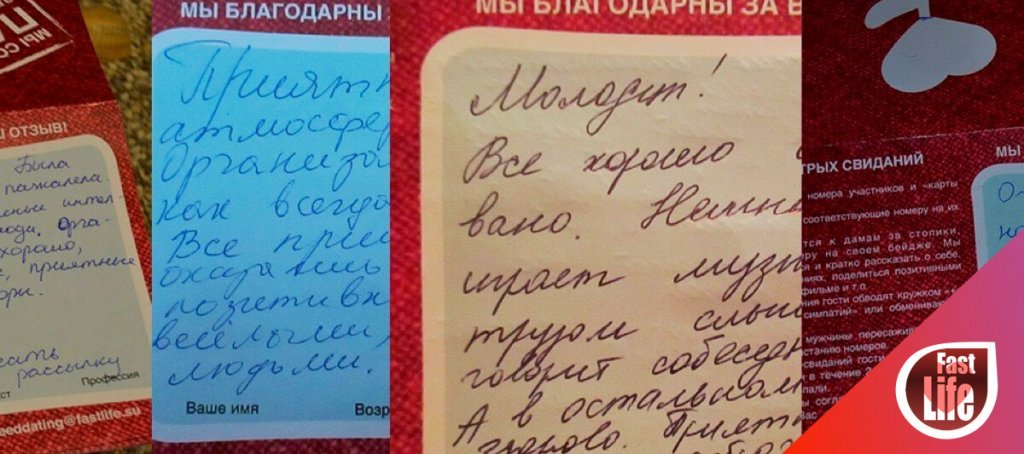 Ш ОТЗЫВ!
Была
пажалела
интел-
орга-
хорошо,
, приятные
рассылку
Профессия
eeddating@fastlife.su
МЫ БЛАГОДАРНЫ
Приятн
атмосфер
Организа
как всегда
Все при
оказались
позитивн
весёлыми,
людьми.
Ваше имя
Возр
МЫ БЛАГОДАРНЫ ЗА В
Молодцы!
Все хорошо
вано. Немн
играет музы
трудом слыш
говорит собеседн
А в остальном
здорово. Приятн
ТРЫХ СВИДАНИЙ
номера участников и «карты
соответствующие номеру на их
тся к дамам за столики,
ру на своем бейдже. Мы
я и кратко рассказать о себе.
ниях, поделиться позитивными
фильме и т.п.
ния гости обводят кружком «+
симпатий» или обменивают
мужчины пересажив
станию номеров.
свиданий гости
и в течение 2
пали.
МЫ
Fast
Life